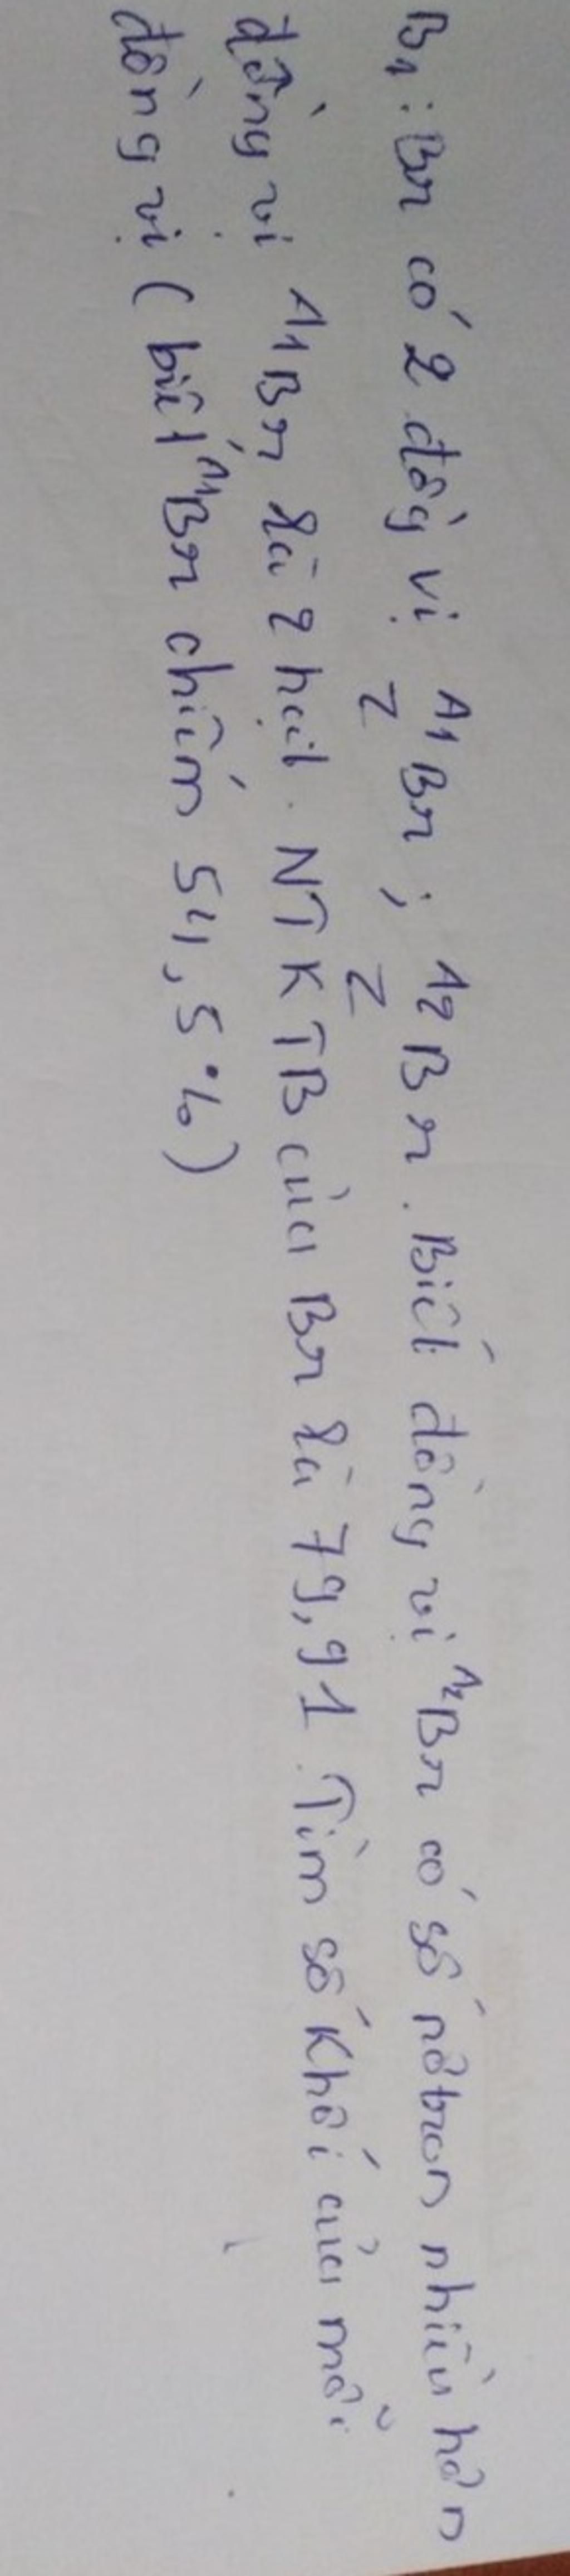 B1: Br có 2 đồg vị A1 Z Br ; A2 Z Br. Biết đồng vị A2Br có số nơtron nhiều hơn
đồng vị A1Br là 2 hạt. NTKTB của Br là 79,91. Tìm số khối của mỗi
đồng vị ( biết A1Br chiếm 54,5%)